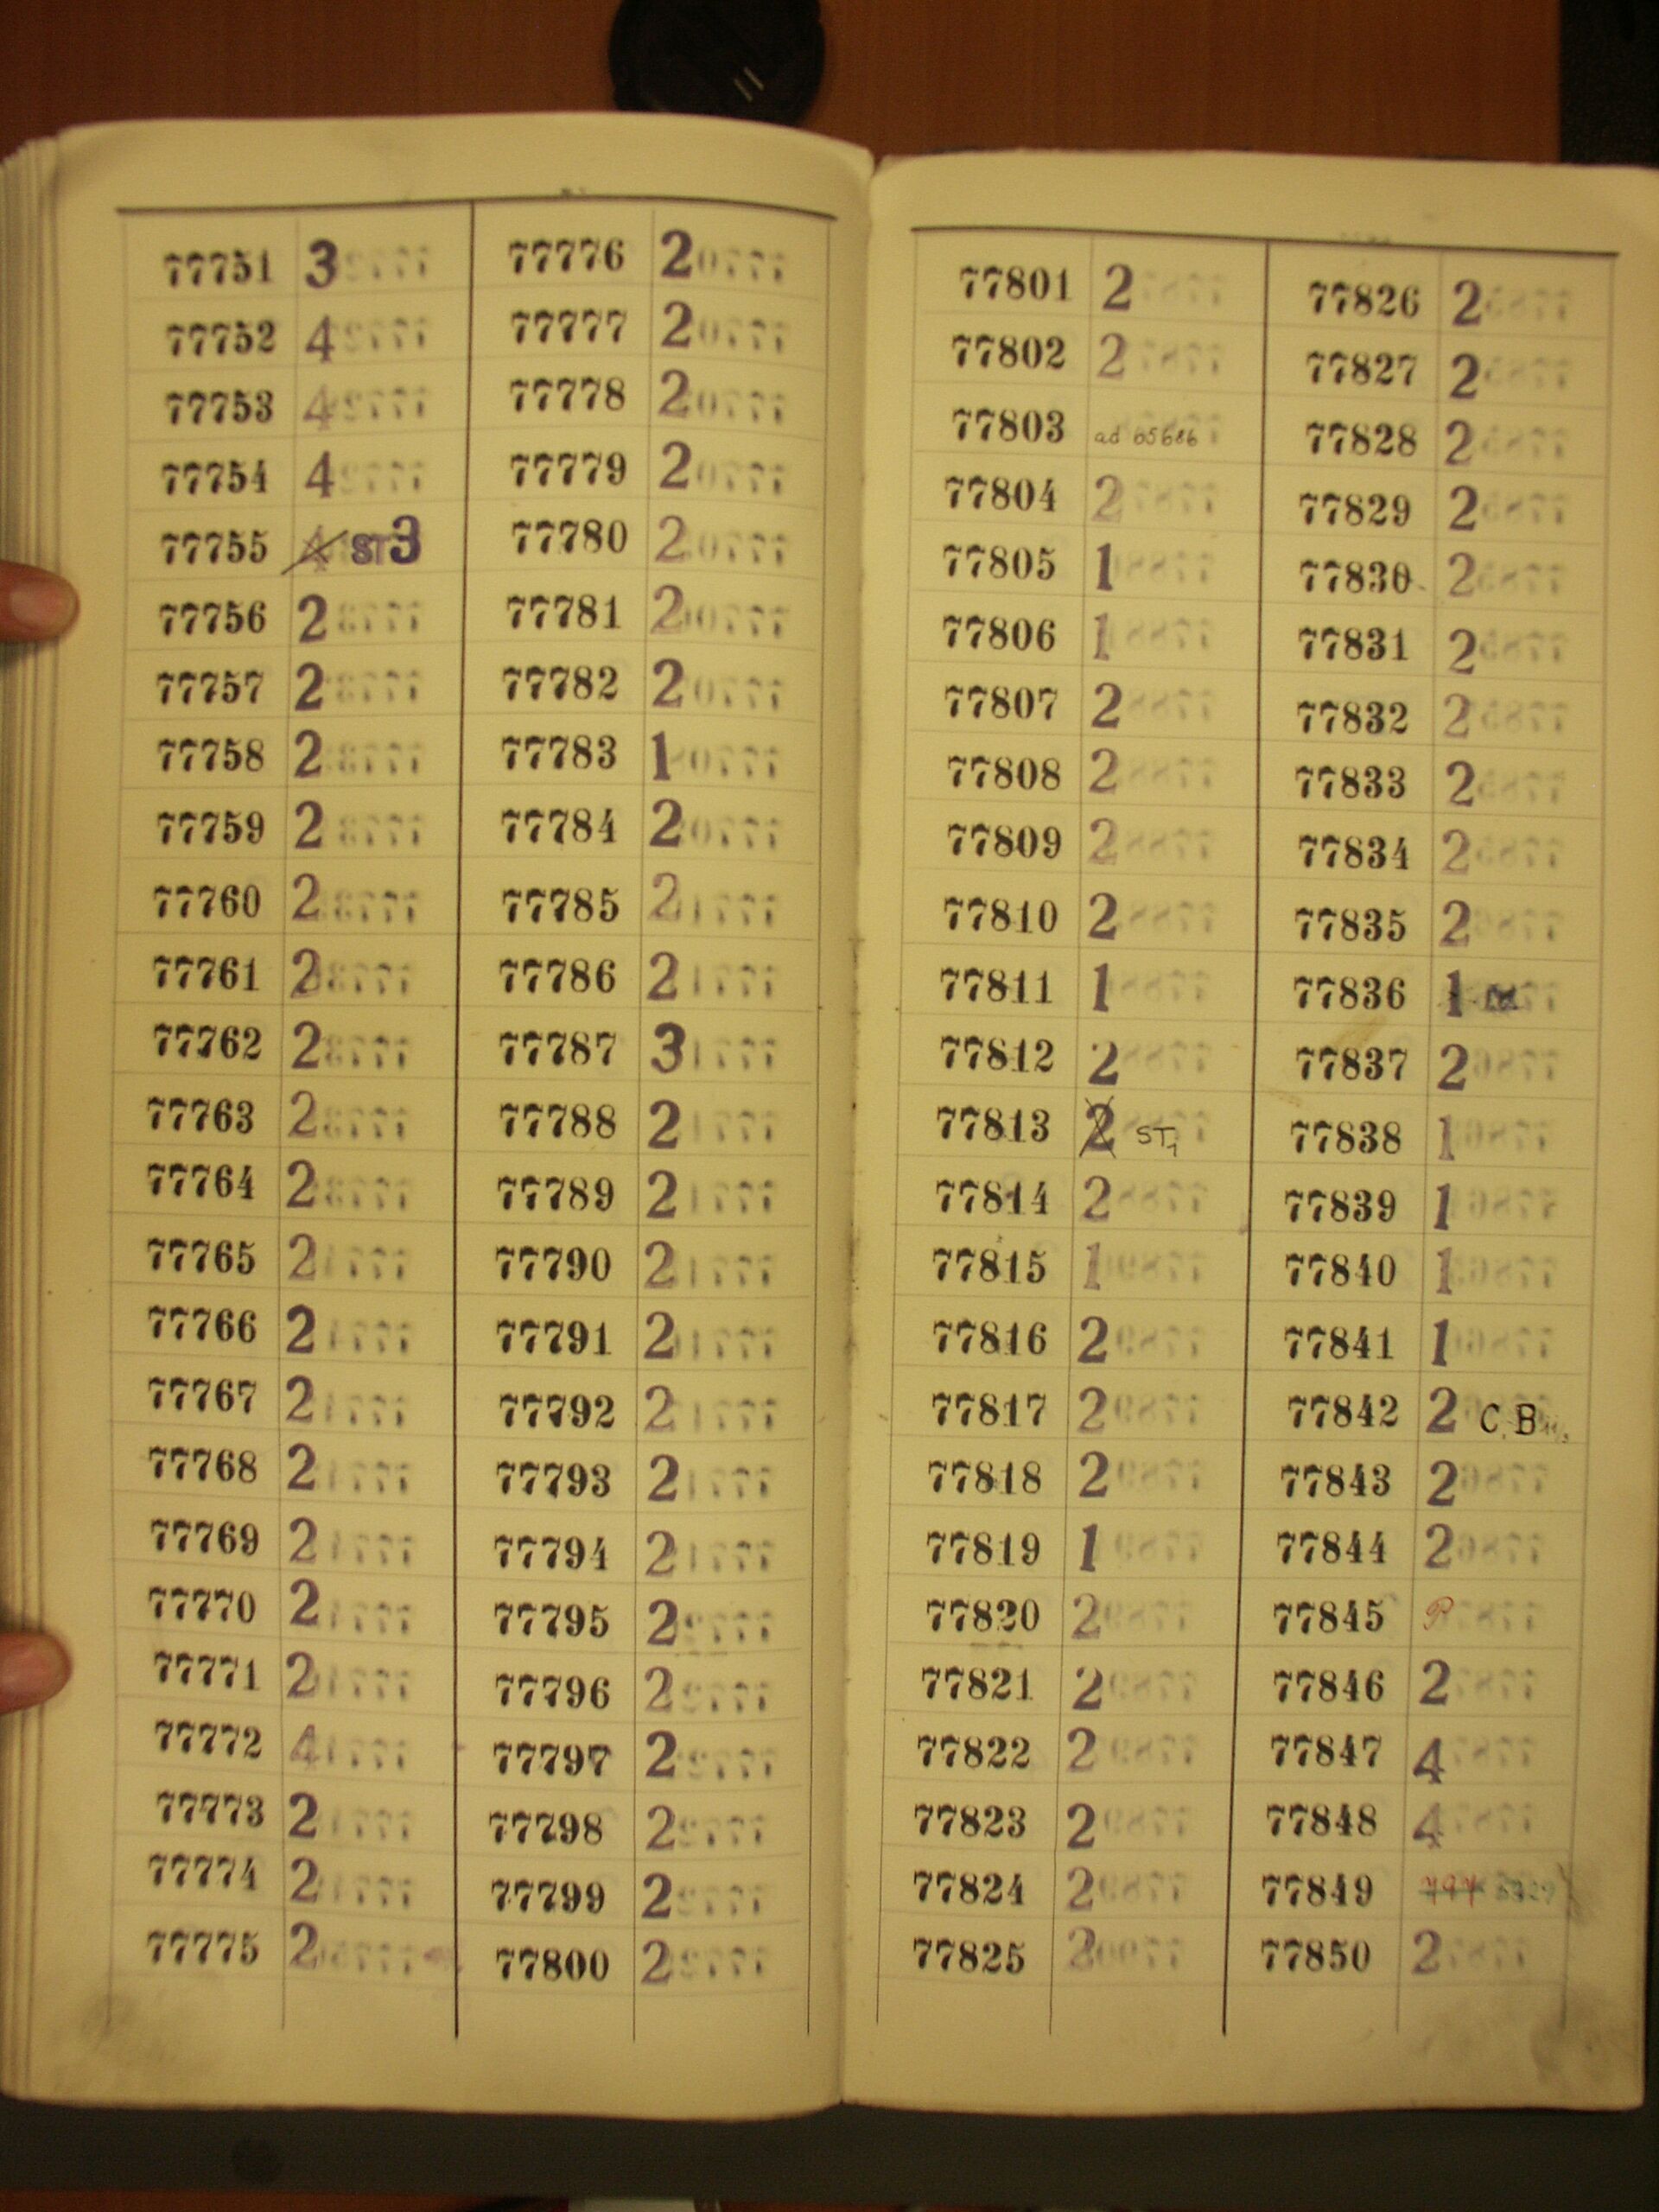 77751 3
77752 4
77753 4
77754 4
77755 4 ST3
77756 2
77757 2
77758 2
77759 2
77760 2
77761 2
77762 2
77763 2
77764 2
77765 2
77766 2
77767 2
77768 2
77769 2
77770 2
77771 2
77772 4
77773 2
77774 2
77775 2
77776 2
77777 2
77778 2
77779 2
77780 2
77781 2
77782 2
77783 1
77784 2
77785 2
77786 2
77787 3
77788 2
77789 2
77790 2
77791 2
77792 2
77793 2
77794 2
77795 2
77796 2
77797 2
77798 2
77799 2
77800 2
77801 2
77802 2
77803 ad 65686
77804 2
77805 1
77806 1
77807 2
77808 2
77809 2
77810 2
77811 1
77812 2
77813 2 ST1
77814 2
77815 1
77816 2
77817 2
77818 2
77819 1
77820 2
77821 2
77822 2
77823 2
77824 2
77825 2
77826 2
77827 2
77828 2
77829 2
77830 2
77831 2
77832 2
77833 2
77834 2
77835 2
77836 1
77837 2
77838 1
77839 1
77840 1
77841 1
77842 2 C.B
77843 2
77844 2
77845 P
77846 2
77847 4
77848 4
77849
77850 2